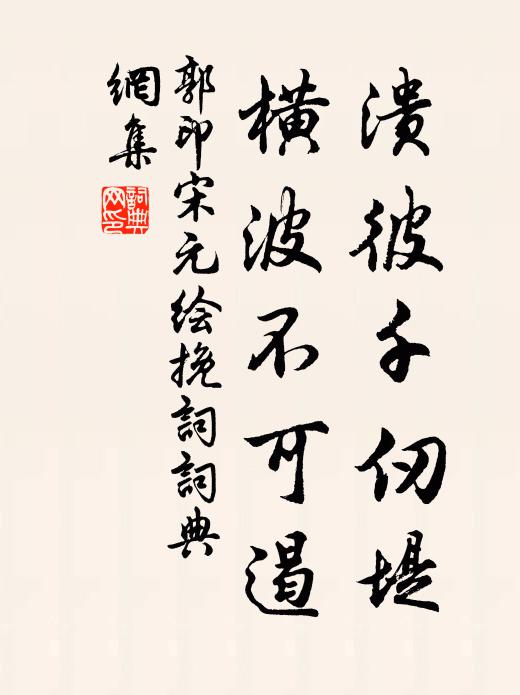 潰彼千仞堤
橫波不可遏
郭印宋元绘挽詞詞典
網集
詞典
网印